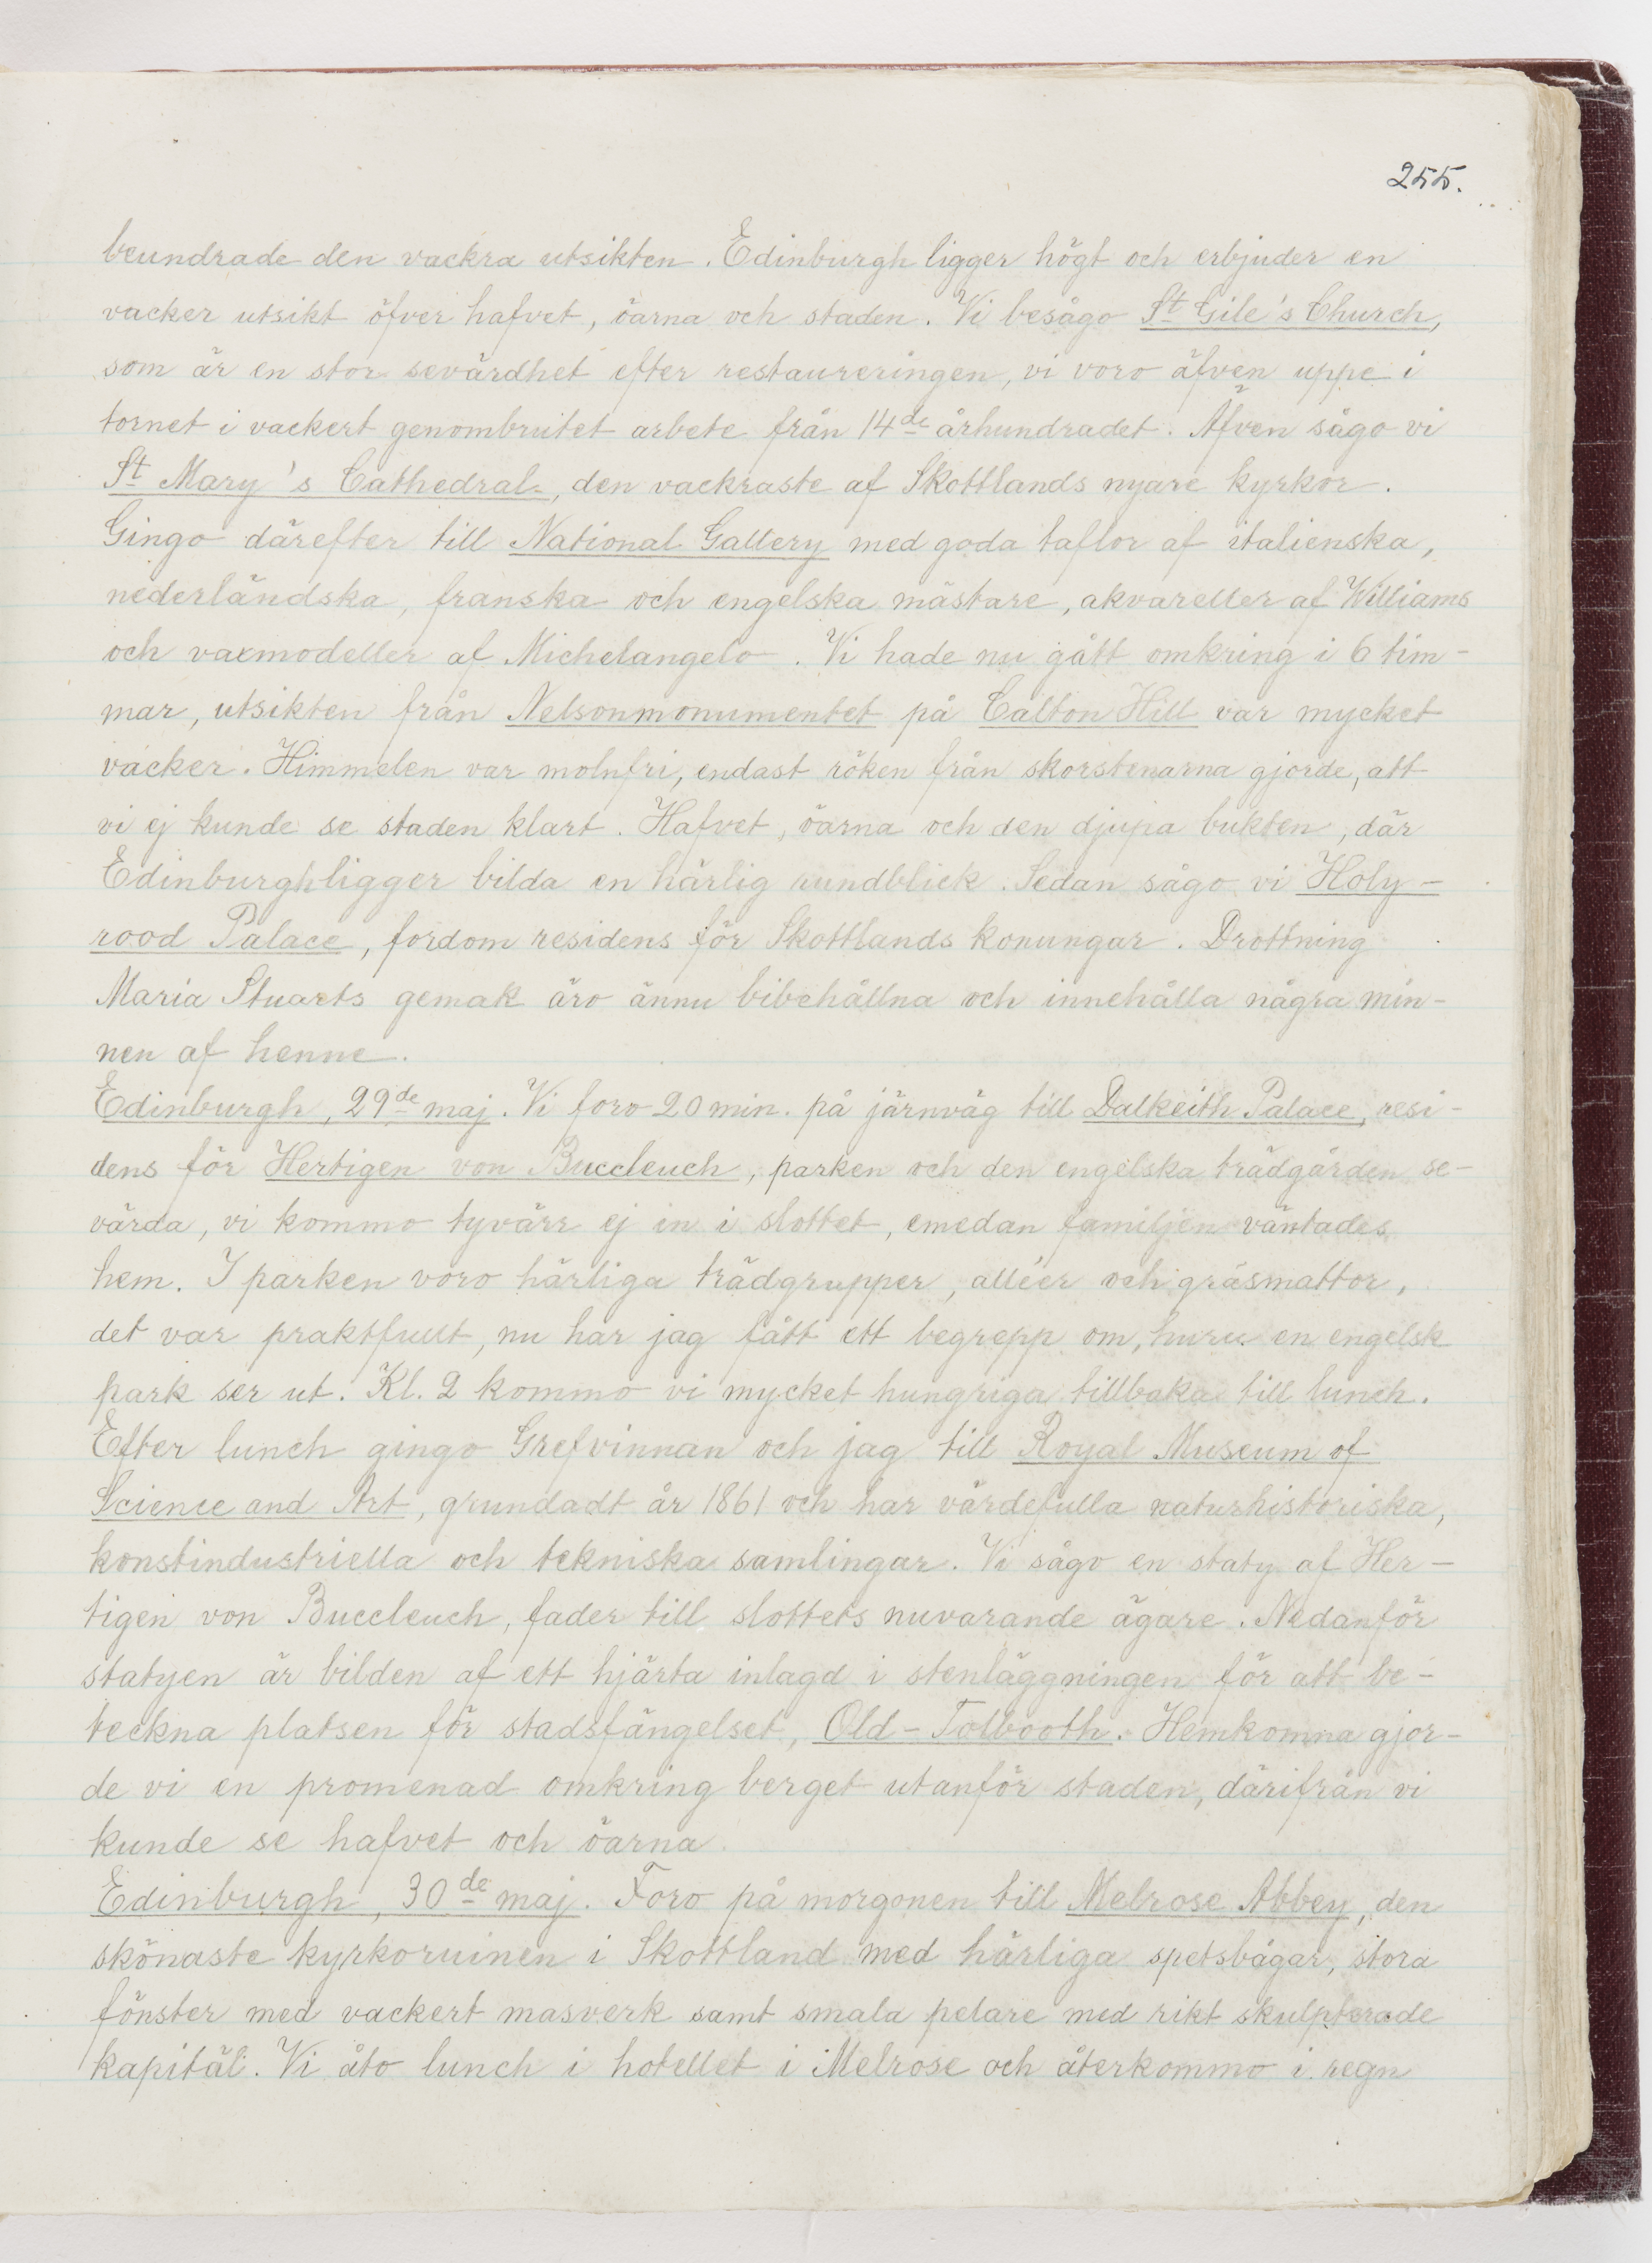 255.
beundrade den vackra utsikten. Edinburgh ligger högt och erbjuder en
vacker utsikt öfver hafvet, öarna och staden. Vi besågo St Gile's Church,
som är en stor sevärdhet efter restaureringen, vi voro äfven uppe i
tornet i vackert genombrutet arbete från 14de århundradet. Äfven sågo vi
St Mary's Cathedral, den vackraste af Skottlands nyare kyrkor.
Gingo därefter till National Gallery med goda taflor af italienska,
nederländska, franska och engelska mästare, akvareller af Williams
och vaxmodeller af Michelangelo. Vi hade nu gått omkring i 6 tim-
mar, utsikten från Nelsonmonumentet på Calton Hill var mycket
vacker. Himmelen var molnfri, endast röken från skorstenarna gjorde, att
vi ej kunde se staden klart. Hafvet, öarna och den djupa bukten, där
Edinburgh ligger bilda en härlig rundblick. Sedan sågo vi Holy-
rood Palace, fordom residens för Skottlands konungar. Drottning
Maria Stuarts gemak äro ännu bibehållna och innehålla några min-
nen af henne.
Edinburgh, 29de maj. Vi foro 20 min. på järnväg till Dalkeith Palace, resi-
dens för Hertigen von Buccleuch, parken och den engelska trädgården se-
värda, vi kommo tyvärr ej in i slottet, emedan familjen väntades
hem. I parken voro härliga trädgrupper, alléer och gräsmattor,
det var praktfullt, nu har jag fått ett begrepp om, huru en engelsk
park ser ut. Kl. 2 kommo vi mycket hungriga tillbaka till lunch.
Efter lunch gingo Grefvinnan och jag till Royal Museum of
Science and Art, grundadt år 1861 och har värdefulla naturhistoriska,
konstindustriella och tekniska samlingar. Vi sågo en staty af Her-
tigen von Buccleuch, fader till slottets nuvarande ägare. Nedanför
statyen är bilden af ett hjärta inlagd i stenläggningen för att be-
teckna platsen för stadsfängelset, Old-Tolbooth. Hemkomna gjor-
de vi en promenad omkring berget utanför staden, därifrån vi
kunde se hafvet och öarna.
Edinburgh, 30de maj. Foro på morgonen till Melrose Abbey, den
skönaste kyrkoruinen i Skottland med härliga spetsbågar, stora
fönster med vackert masverk samt smala pelare med rikt skulpterade
kapitäl. Vi åto lunch i hotellet i Melrose och återkommo i regn